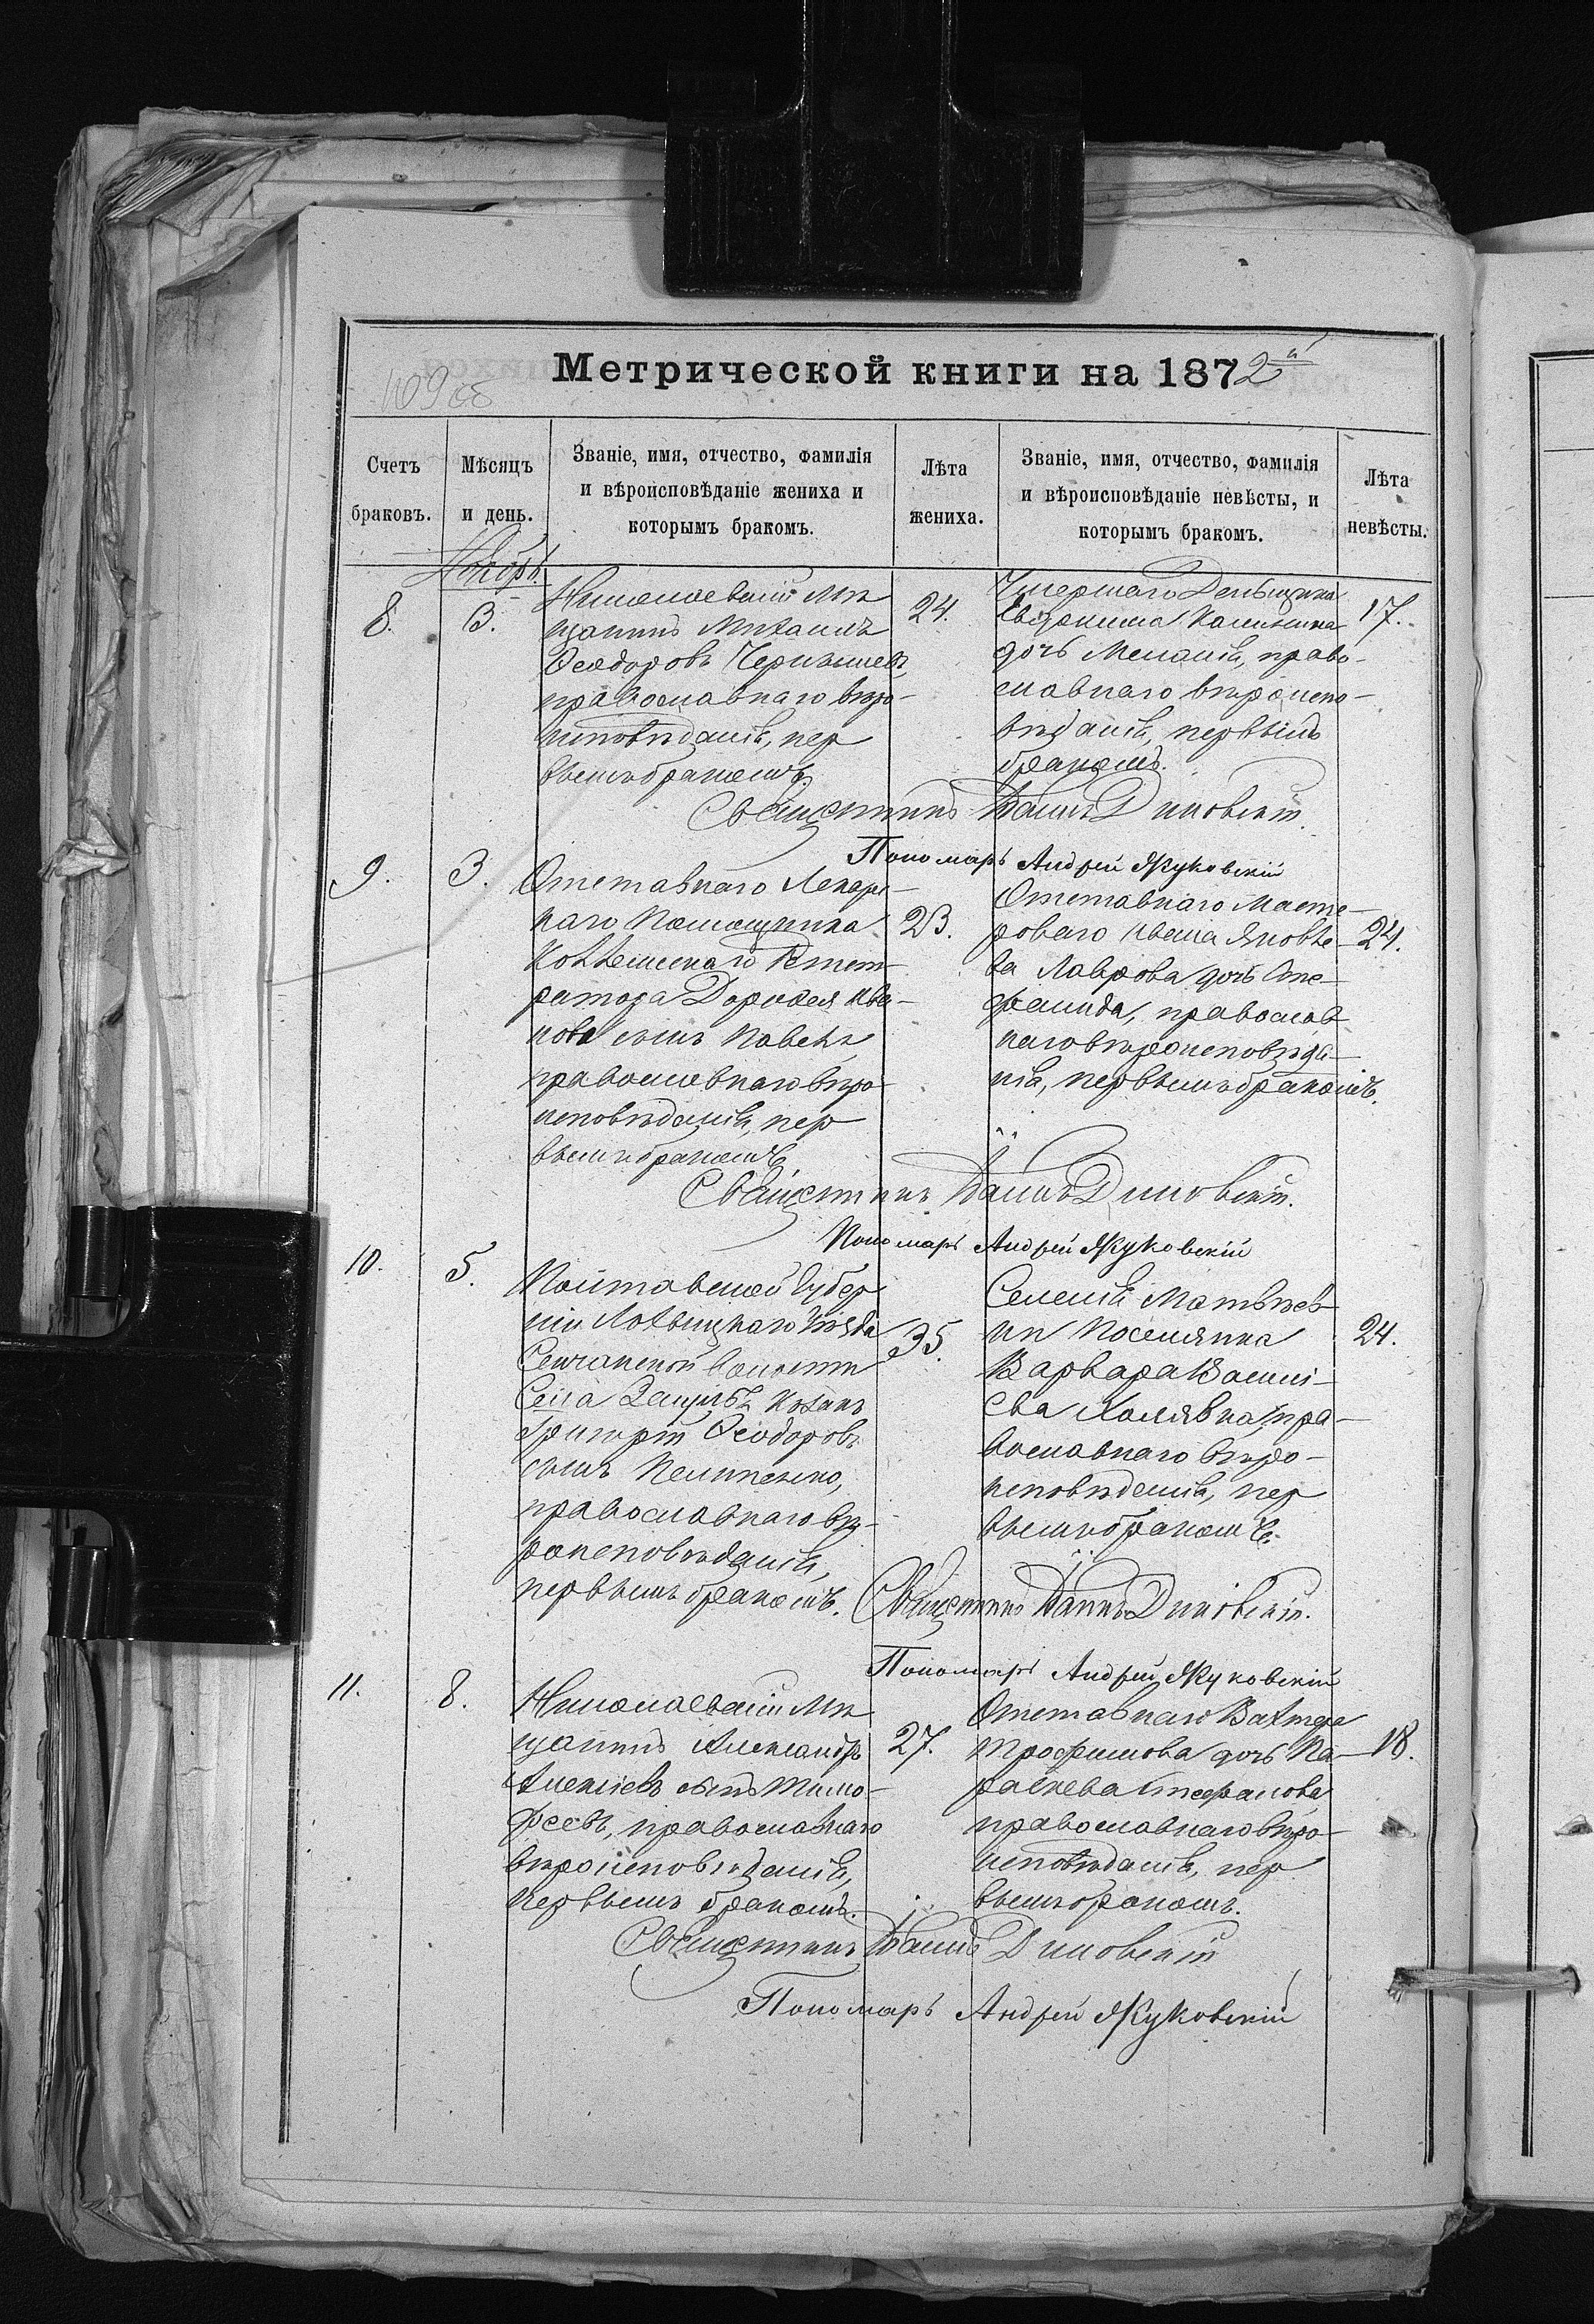 Метрической книги на 1872й
409 об
Счетъ браковъ.
Мѣсяцъ и день.
Званіе, имя, отчество, фамилія
и вѣроисповѣданіе жениха и
которымъ бракомъ.
Лѣта жениха.
Званіе, имя, отчество, фамилія
и вѣроисповѣданіе невѣсты, и
которымъ бракомъ.
Лѣта невѣсты.
Ноябрь
8.
3.
Николаевскій Мѣ
щанинъ Михаилъ
Ѳеодоровъ
православнаго вѣро-
исповѣданія, пер
вымъ бракомъ.
24.
Умершаго Деньщика
Калинина
дочь Меланія, право-
славнаго вѣроиспо-
вѣданія, первымъ
бракомъ.
17.
Священникъ Даніилъ Диковскій.
Пономарь Андрей Жуковскій
9.
3.
Отставнаго Лекарс-
каго Помощника
Коллежскаго Регист-
ратора Дорофея Ива-
нова сынъ Павелъ
православнаго вѣро-
исповѣданія, пер
вымъ бракомъ
23.
Отставнаго Масте-
роваго Ивана Яковле-
ва Лаврова дочь Сте-
фанида, православ
наго вѣроисповѣда-
нія, первымъ бракомъ.
24.
Священникъ Даніилъ Диковскій.
Пономарь Андрей Жуковскій
10.
5.
Полтавской Губер
ніи Лохвицкаго Уѣзда
Сенчанской Волости
Села козакъ
Григорій Ѳеодоровъ
сынъ
православнаго вѣ-
роисповѣданія,
первымъ бракомъ.
35.
Селенія Матвѣев-
ки Поселянка
Варвара Василі-
ева Холявка, пра-
вославнаго вѣро-
исповѣданія, пер
вымъ бракомъ.
24.
Священникъ Даніилъ Диковскій.
Пономарь Андрей Жуковскій
11.
8.
Николаевскій Мѣ
щанинъ Александръ
Алексѣевъ сынъ Тимо-
феевъ, православнаго
вѣроисповѣданія,
первымъ бракомъ.
27.
Отставнаго Вахтера
Трофимова дочь Па-
раскева Стефанова
православнаго вѣро-
исповѣданія, пер
вымъ бракомъ.
18.
Священникъ Даніилъ Диковскій
Пономарь Андрей Жуковскій